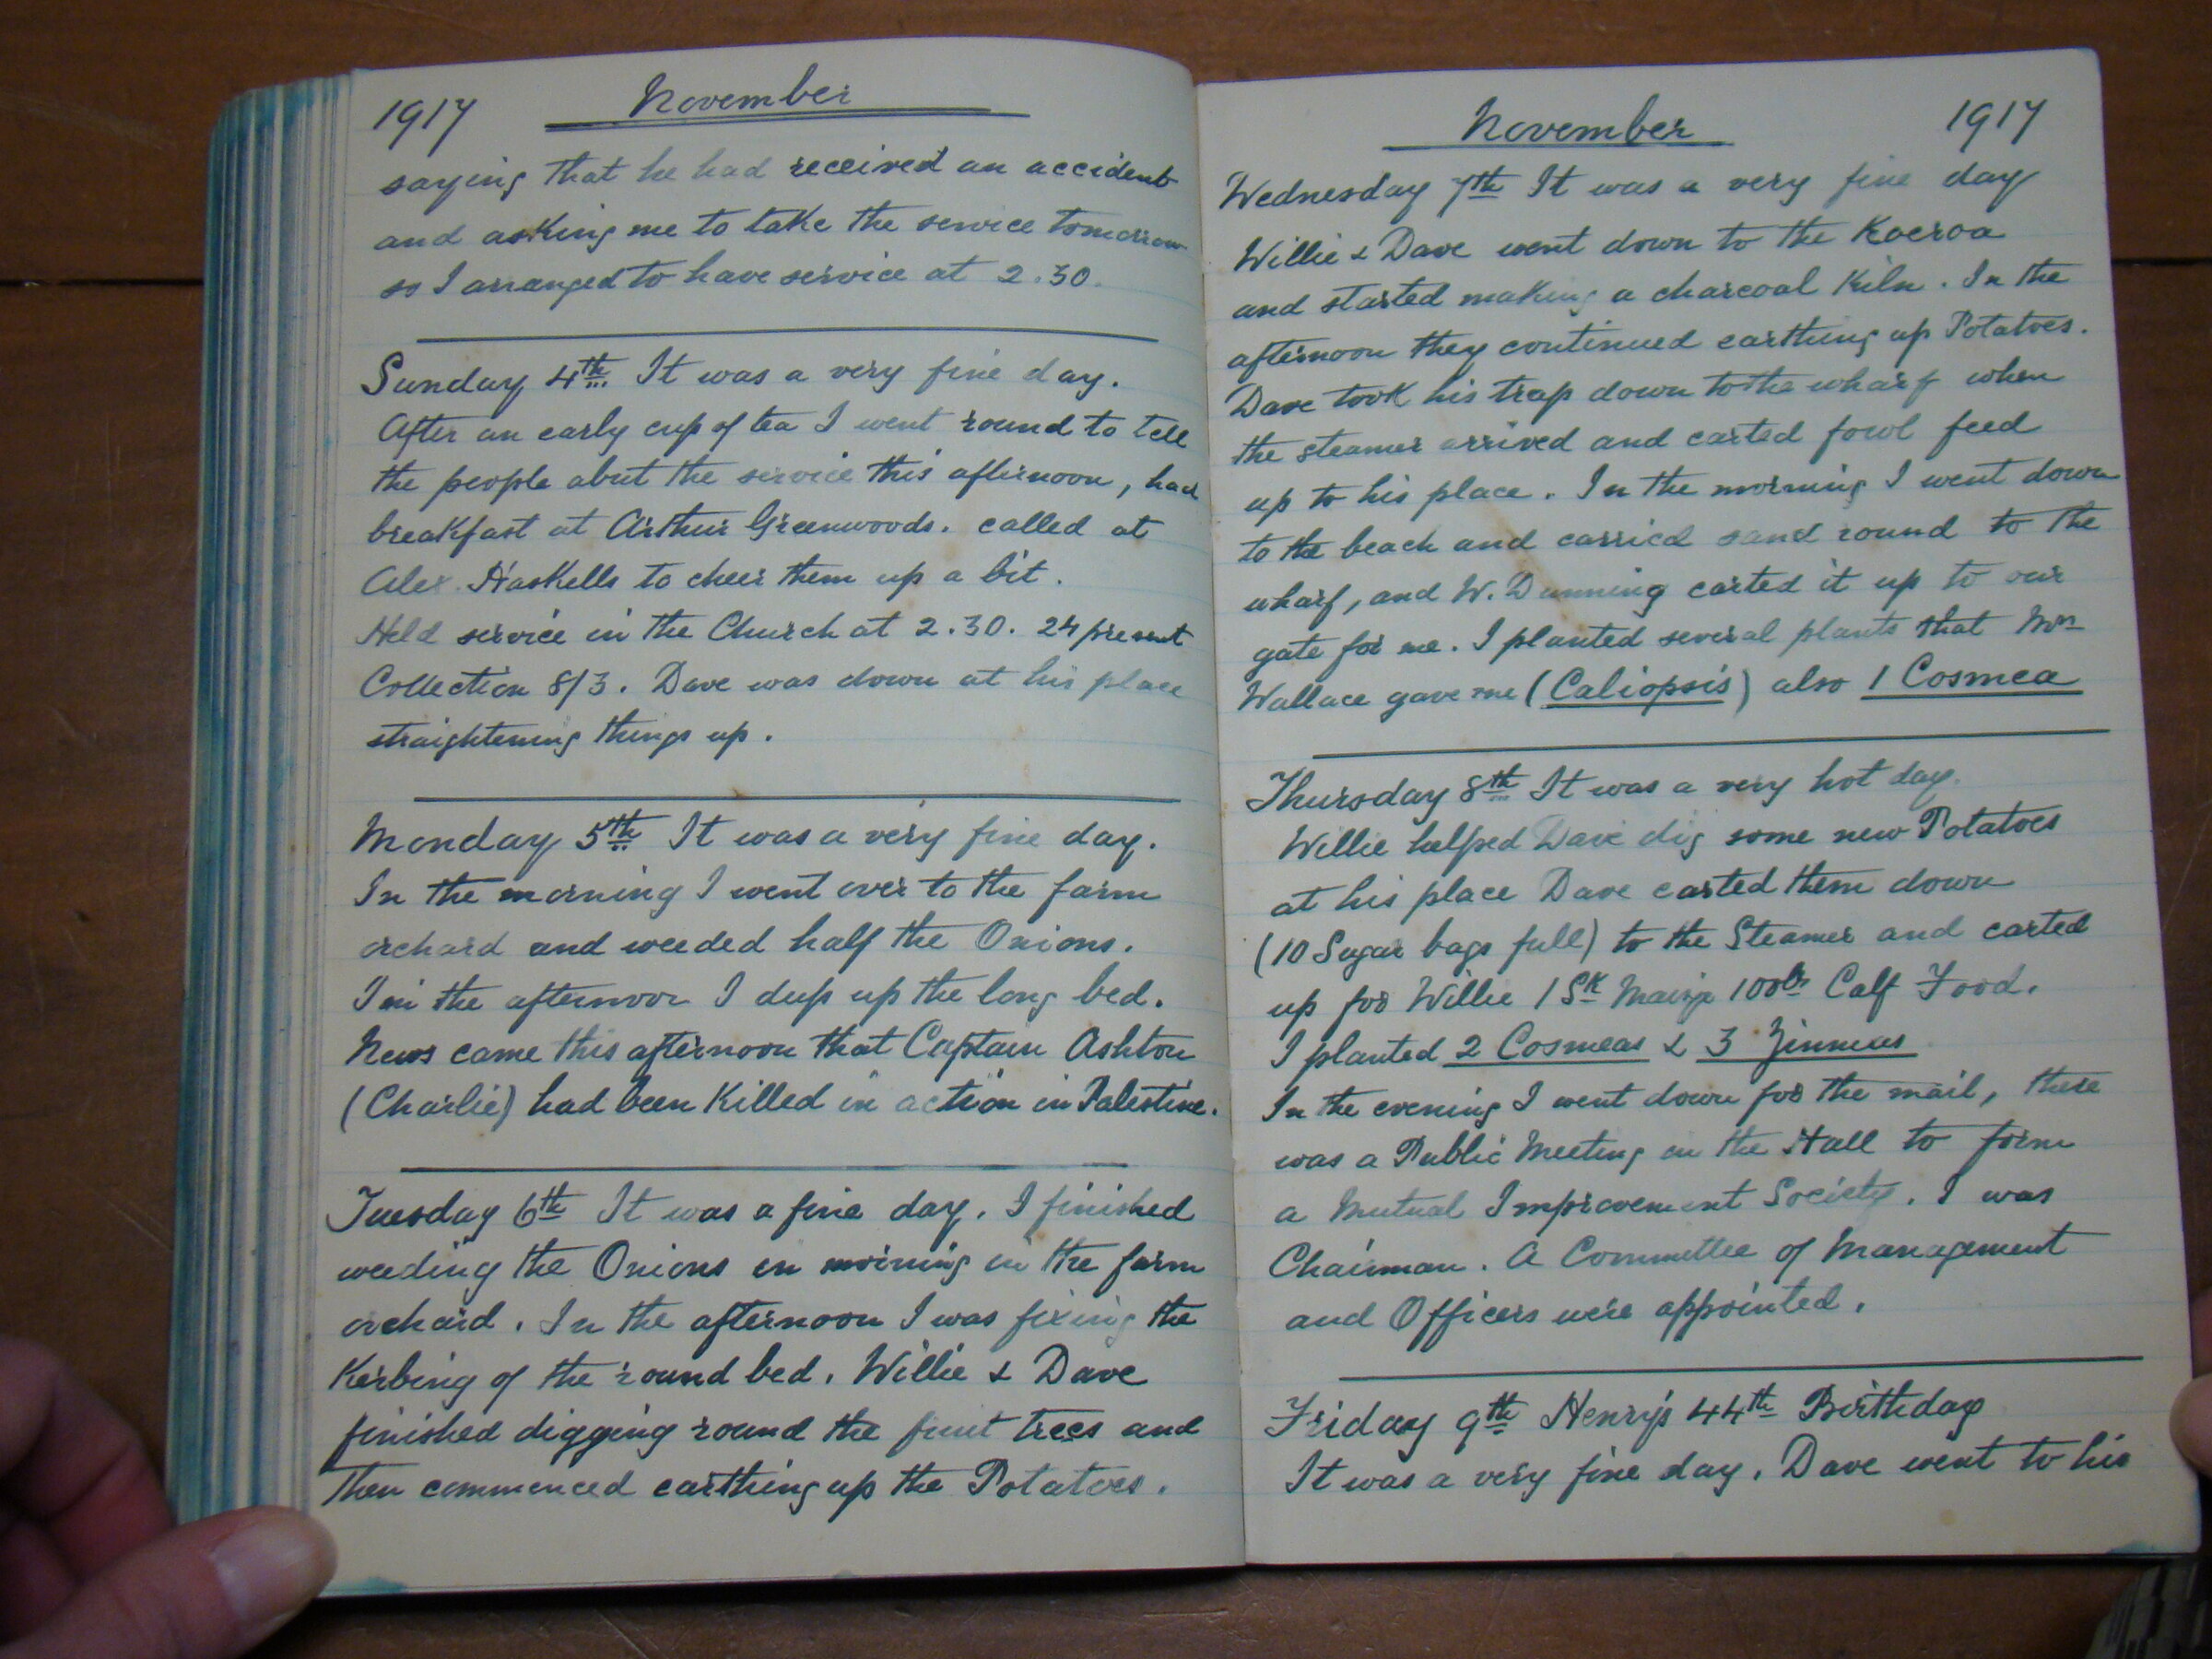 1917 November
saying that he had received an accident
and asking me to take the service tomorrow
so I arranged to have service at 2.30.
Sunday 4th It was a very fine day.
After an early cup of tea I went round to tell
the people abut the service this afternoon, had
breakfast at Arthur Greenwoods. called at
Alex. Haskells to cheer them up a bit.
Held service in the Church at 2.30. 24 present
Collection 8/3. Dave was down at his place
straightening things up.
Monday 5th It was a very fine day.
In the morning I went over to the farm
orchard and weeded half the Onions.
In the afternoon I dup up the long bed.
News came this afternoon that Captain Ashton
(Charlie) had been Killed in action in Palestine.
Tuesday 6th It was a fine day. I finished
weeding the Onions in morning in the farm
orchard. In the afternoon I was fixing the
Kerbing of the round bed. Willie & Dave
finished digging round the fruit trees and
then commenced earthing up the Potatoes.
November 1917
Wednesday 7th It was a very fine day
Willie & Dave went down to the Kaeroa
and started making a charcoal Kiln. In the
afternoon they continued earthing up Potatoes.
Dave took his trap down to the wharf when
the steamer arrived and carted fowl feed
up to his place. In the morning I went down
to the beach and carried sand round to the
wharf, and W. Dunning carted it up to our
gate for me. I planted several plants that Mrs
Wallace gave me (Caliopsis) also 1 Cosmea
Thursday 8th It was a very hot day.
Willie helped Dave dig some new Potatoes
at his place Dave carted them down
(10 Sugar bags full) to the Steamer and carted
up for Willie 1 Sk Maize 100lb Calf Food.
I planted 2 Cosmeas & 3 Zinneas
In the evening I went down for the mail, there
was a Public Meeting in the Hall to form
a Mutual Improvement Society. I was
Chairman. A Committee of Management
and Officers were appointed.
Friday 9th Henry's 44th Birthday
It was a very fine day. Dave went to his